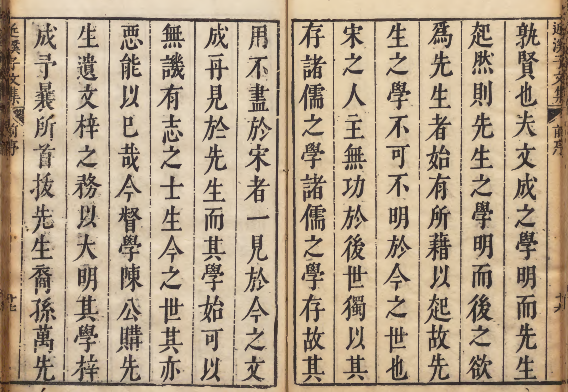 近溪子文集 前序 廿六
孰賢也夫文成之學明而先生
起然則先生之學明而後之欲
爲先生者始有所藉以起故先
生之學不可不明於今之世也
宋之人主無功於後世獨以其
存諸儒之學諸儒之學存故其
用不盡於宋者一見於今之文
成再見於先生而其學始可以
無譏有志之士生今之世其亦
惡能以已哉今督學陳公購先
生遺文梓之務以大明其學梓
成予曩所首拔先生裔孫萬先
近溪子文集 前序 廿七